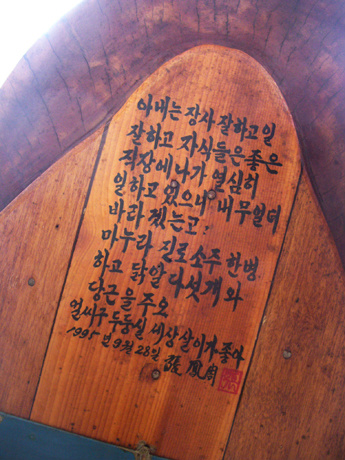 아내는 장사 잘하고 일
잘하고 자식들은 좋은
직장에 나가 열심히
일하고 있으니 내 무얼 더
바라겠는고?
마누라 진로소주 한병
하고 닭알 다섯개와
당근을 주오
얼씨구 두둥실 세상살이가 좋아
1995년 9월 28일 張鳳周